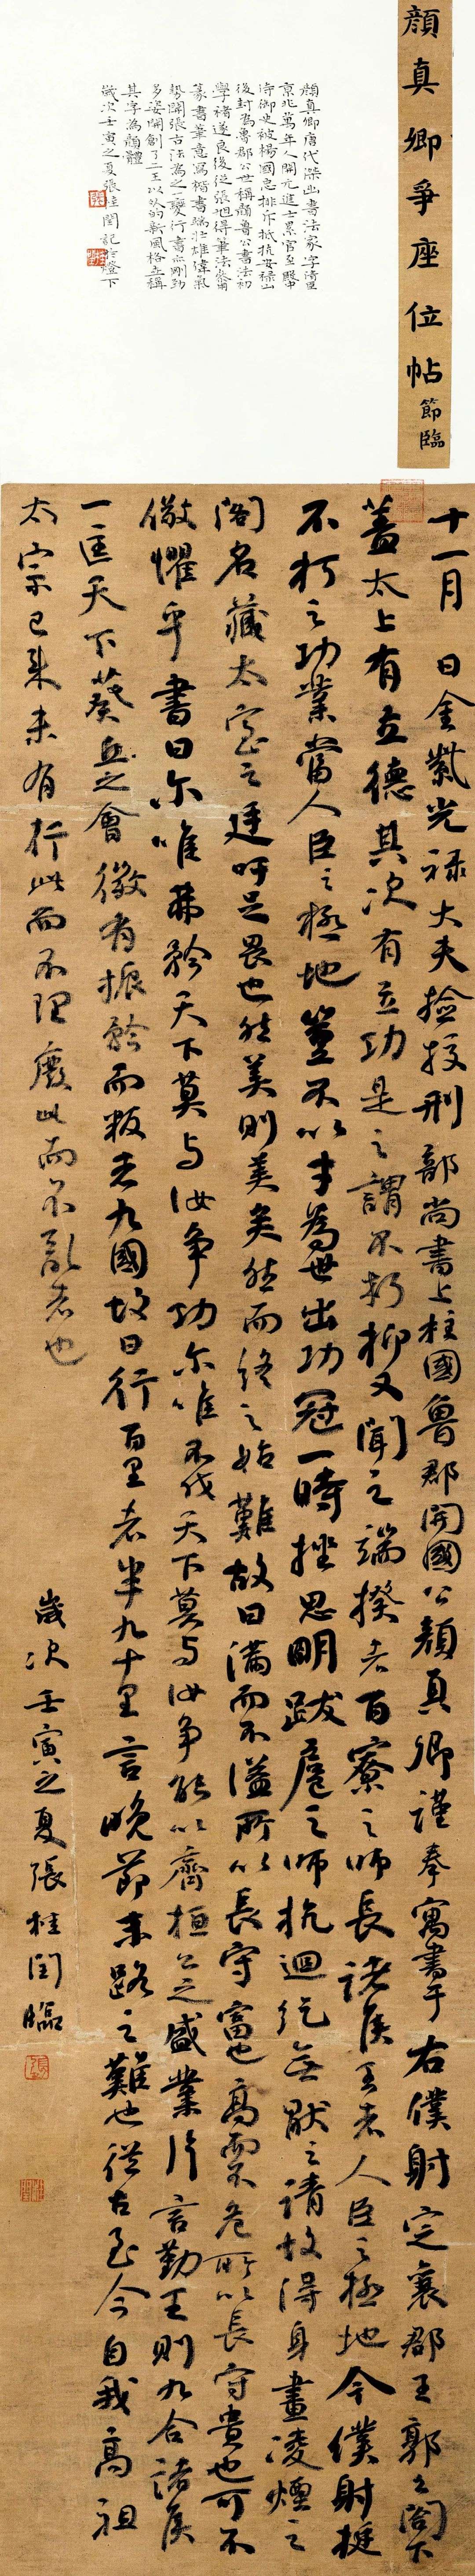 顏真卿爭座位帖節臨
顏真卿唐代傑出書法家字清臣
京兆萬年人開元進士累官至殿中
侍御史被楊國忠排斥抵抗安祿山
後封為魯郡公世稱顏魯公書法初
學褚遂良後從張旭得筆法參用
篆書筆意寫楷書端莊雄偉氣
勢開張古法為之一變行書亦剛勁
多姿開創了二王以外的新風格並稱
其字為顏體
歲次壬寅之夏張桂閏記於燈下
十一月 日金紫光祿大夫撿挍刑部尚書上柱國魯郡開國公顏真卿謹奉寓書于右僕射定襄郡王郭公閤下
蓋太上有立德其次有立功是之謂不朽抑又聞之端揆者百寮之師長諸侯王者人臣之極地今僕射挺
不朽之功業當人臣之極地豈不以才為世出功冠一時挫思明跋扈之師抗迴紇無猒之請故得身畫凌煙之
閣名藏太室之廷吁足畏也然美則美矣然而終之始難故曰滿而不溢所以長守富也高而不危所以長守貴也可不
儆懼乎書曰尔唯弗矜天下莫与汝争功尔唯不伐天下莫与汝争能以齊桓公之盛業片言勤王則九合諸侯
一匡天下葵丘之會微有振矜而叛者九國故曰行百里者半九十里言晚節末路之難也從古至今自我高祖
太宗已來未有行此而不理廢此而不亂者也
歲次壬寅之夏張桂閏臨